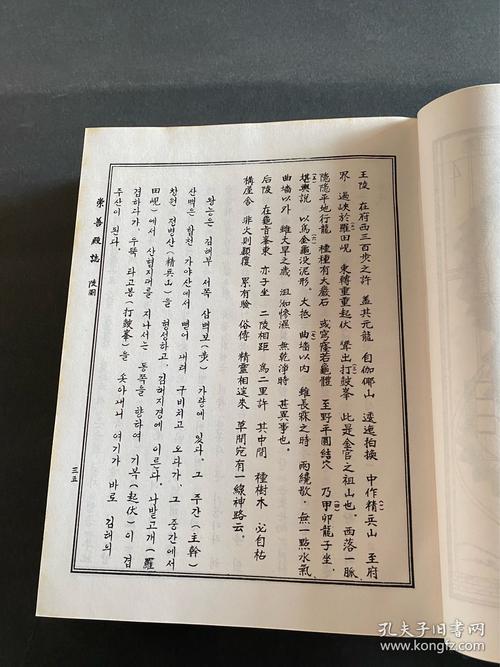 王陵 在府西三百步之許 蓋其元龍 自伽倻山 逶迤拍換 中作精兵山 至府
界 過峽於羅田峴 東轉重重起伏 聳出打鼓峯 此是金官之祖山也. 西落一脈
隱隱平地行龍 種種有大巖石 或穹窿若龜體 至野平圓結穴 乃甲卯龍子坐.
堪輿說 以爲金龜没泥形. 大抵 曲墻以內 雖長霖之時 雨纔歇, 無一點水氣
曲墻以外 雖大旱之歲 沮洳慘濕 無乾淨時 甚異事也.
后陵 在龜音峯東 亦子坐 二陵相距 爲二里許 其中間 種樹木 必自枯
構屋舍 非火則顚覆 累有驗 俗傳 精靈相逆來 草間宛有一線神路云.
왕능은 김해부 서쪽 삼백보(步) 가량에 있다. 그 주간(主幹)
산맥은 합천 가야산에서 뻗어 내려 구비치고 오다가, 그 중간에서
창원 전병산(精兵山)을 형성하고, 김해지경에 이른다. 나발고개(羅
田峴)에서 산협지대를 지나서는 동쪽을 향하여 기복(起伏)이 겹
겹하다가, 우뚝 타고봉(打鼓峯)을 솟아내니 여기가 바로 김해의
주산이 된다.
崇善殿誌 陵圖
三五
孔夫子旧书网
www.kongfz.com